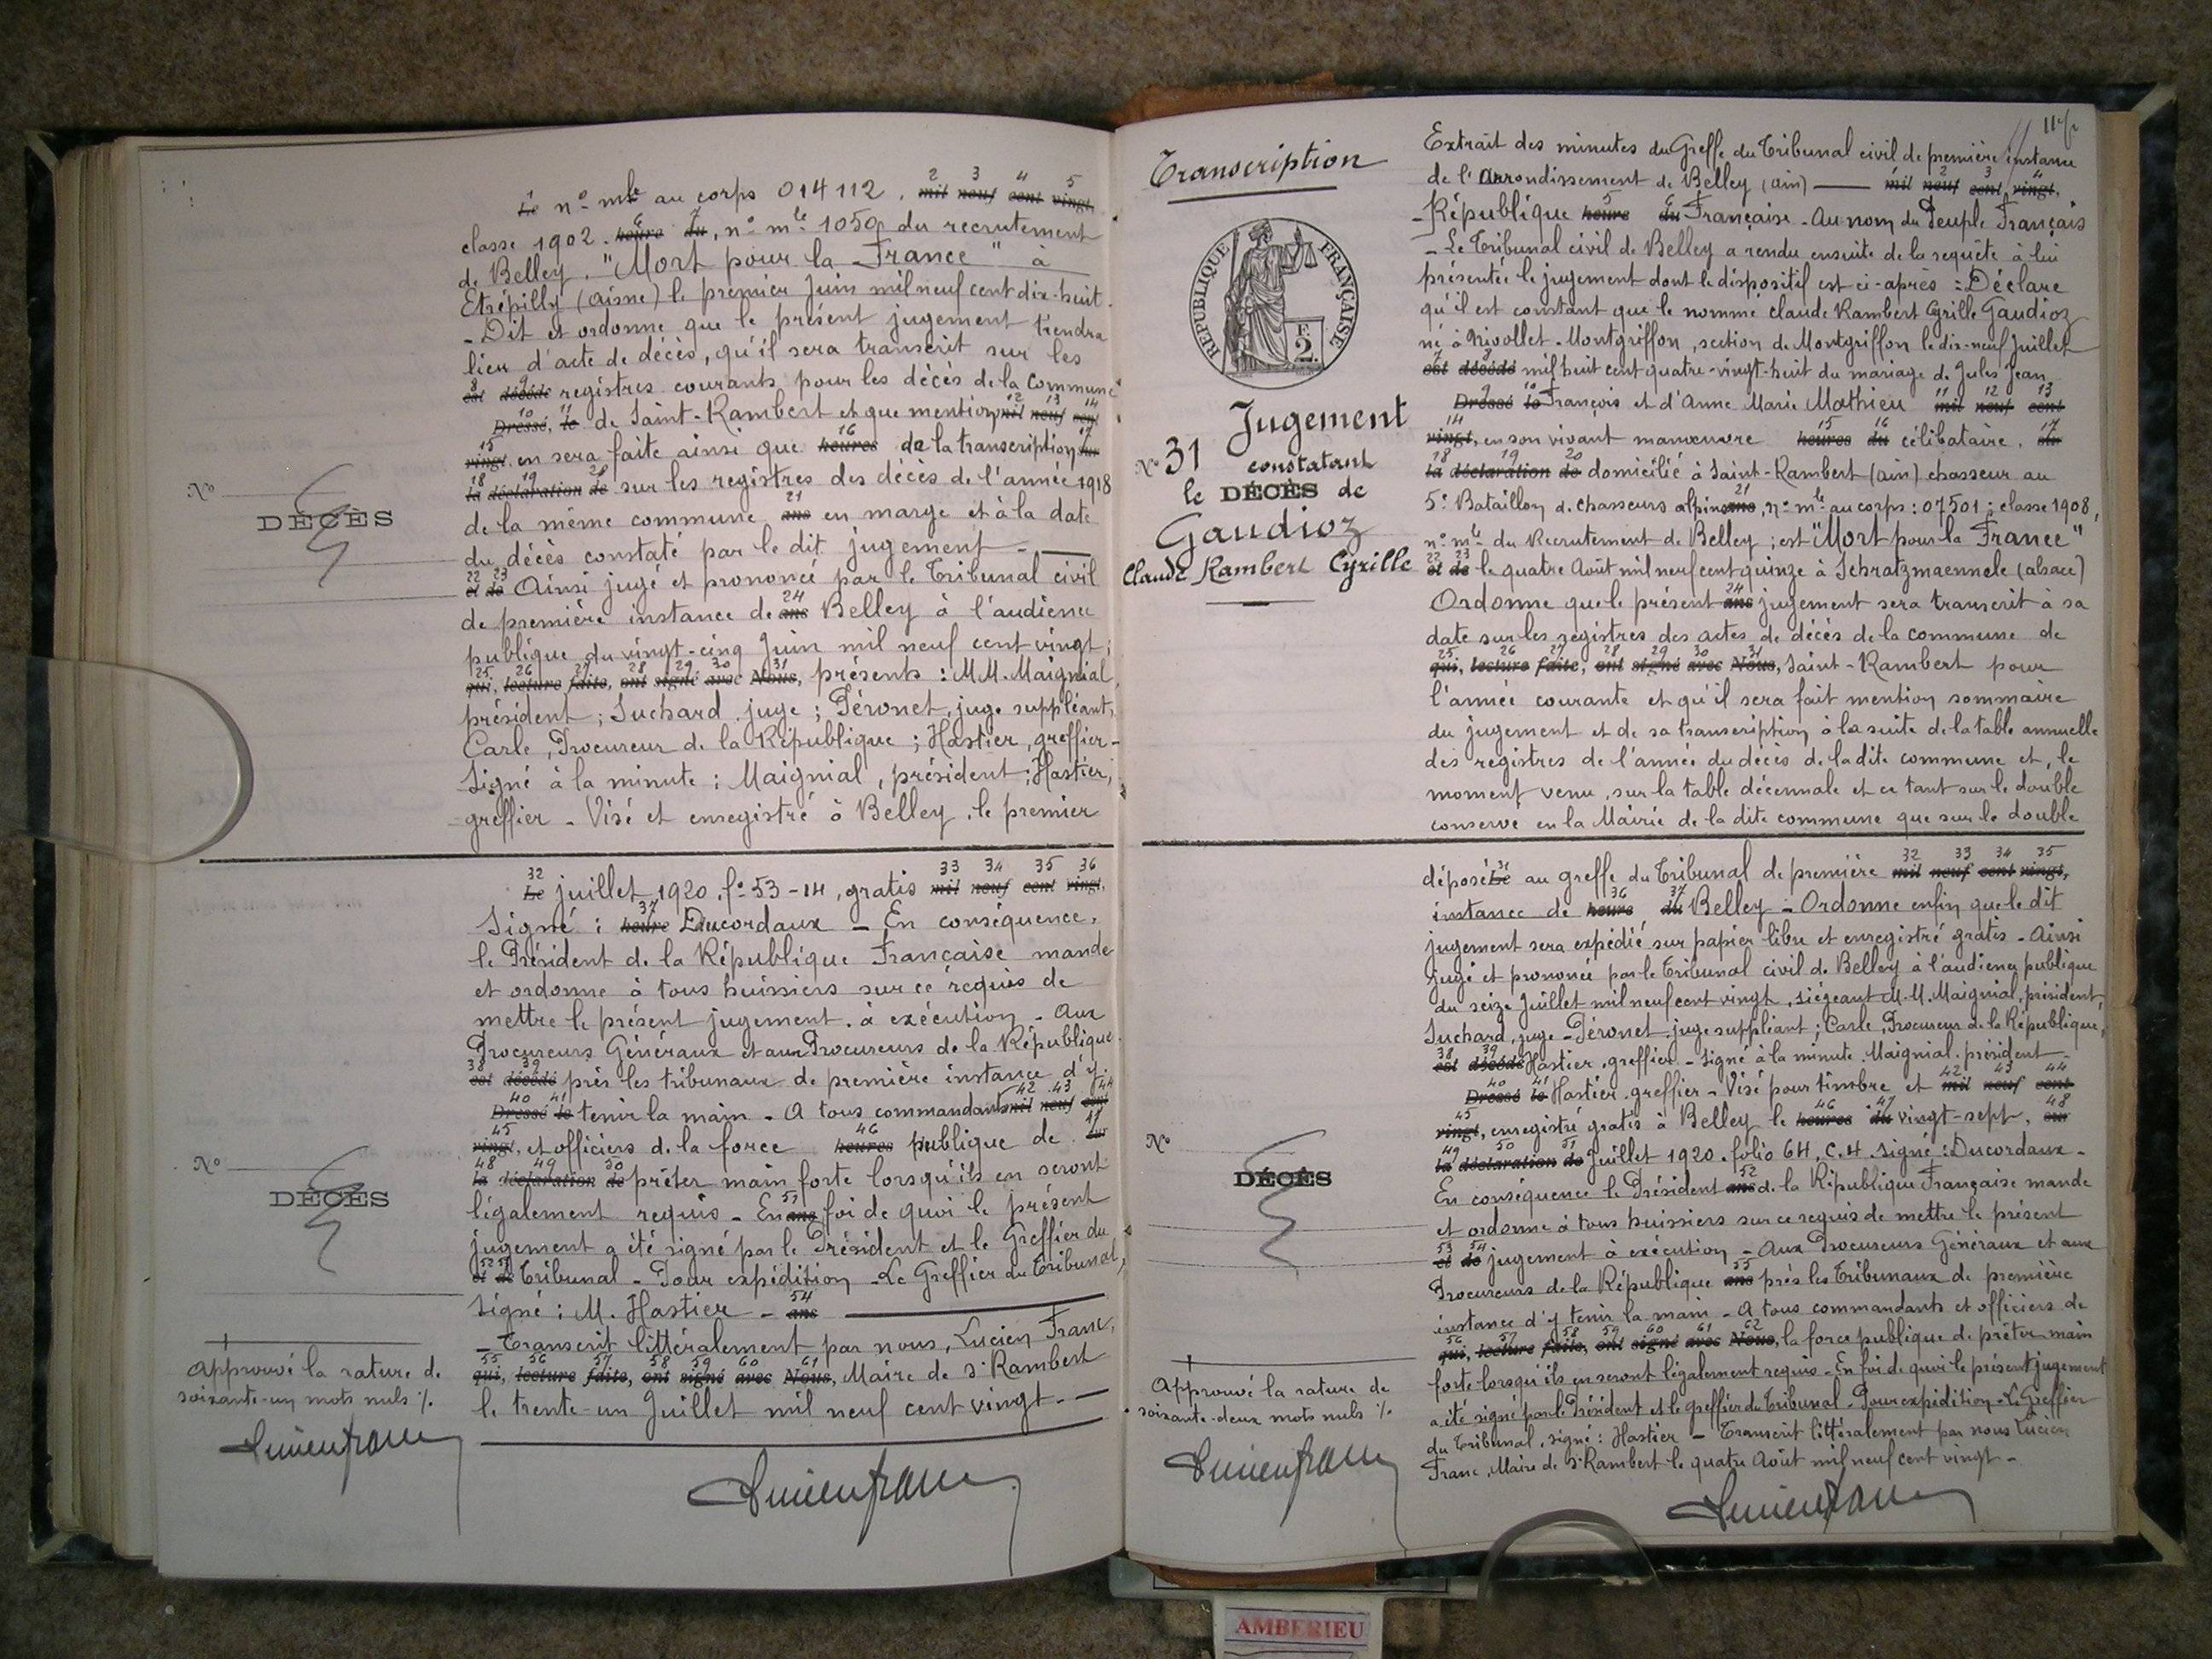 Le n° mle au corps 014112. mil neuf cent vingt,
classe 1902. heure du, n° mle 1050 du recrutement
de Belley. "Mort pour la France" à
Etrépilly (Aisne) le premier Juin mil neuf cent dix-huit.
- Dit et ordonne que le présent jugement tiendra
lieu d'acte de décès, qu'il sera transcrit sur les
est décédé registres courants pour les décès de la commune
Dressé, le de Saint-Rambert et que mention mil neuf cent
vingt, en sera faite ainsi que heures de la transcription sur
la déclaration de sur les registres des décès de l'année 1918
de la même commune ans en marge et à la date
du décès constaté par le dit jugement -
et de Ainsi jugé et prononcé par le Tribunal civil
de première instance de ans Belley à l'audience
publique du vingt-cinq Juin mil neuf cent vingt;
qui, lecture faite, ont signé avec Nous, présents : M.M. Maignial,
président ; Suchard, juge ; Péronet, juge suppléant,
Carle, Procureur de la République ; Hastier, greffier -
Signé à la minute : Maignial, président ; Hastier,
greffier - Visé et enregistré à Belley, le premier
N°
DÉCÈS
Le juillet 1920, f° 53-14, gratis mil neuf cent vingt,
Signé : heure Ducordaux - En conséquence,
le Président de la République Française mande
et ordonne à tous huissiers sur ce requis de
mettre le présent jugement à exécution - Aux
Procureurs Généraux et aux Procureurs de la République
est décédé près les tribunaux de première instance d'y
Dressé le tenir la main - A tous commandants mil neuf cent
vingt, et officiers de la force heures publique de sur
la déclaration de prêter main forte lorsqu'ils en seront
légalement requis - En ans foi de quoi le présent
jugement a été signé par le Président et le Greffier du
et de Tribunal - Pour expédition - Le Greffier du Tribunal,
Signé : M. Hastier - ans
- Transcrit littéralement par nous, Lucien Franc,
qui, lecture faite, ont signé avec Nous, Maire de St Rambert
le trente-un Juillet mil neuf cent vingt. -
N°
DÉCÈS
Approuvé la rature de
soixante-un mots nuls %.
Lucien Franc
Lucien Franc
Transcription
RÉPUBLIQUE FRANÇAISE
F.
2.
Jugement
N° 31 constatant
le DÉCÈS de
Gaudioz
Claude Rambert Cyrille
Extrait des minutes du Greffe du Tribunal civil de première instance
de l'Arrondissement de Belley (Ain) — mil neuf cent vingt,
- République heure du Française - Au nom du Peuple Français
- Le Tribunal civil de Belley a rendu ensuite de la requête à lui
présentée le jugement dont le dispositif est ci-après : Déclare
qu'il est constant que le nommé Claude Rambert Cyrille Gaudioz
né à Nivollet-Montgriffon, section de Montgriffon le dix-neuf Juillet
est décédé mil huit cent quatre-vingt-huit du mariage de Jules Jean
Dressé le François et d'Anne Marie Mathieu mil neuf cent
vingt, en son vivant manoeuvre heures du célibataire, sur
la déclaration de domicilié à Saint-Rambert (Ain) chasseur au
5e Bataillon de Chasseurs alpins ans, n° mle au corps : 07501 ; classe 1908,
n° mle du Recrutement de Belley ; est "Mort pour la France"
et de le quatre Août mil neuf cent quinze à Schratzmaennele (Alsace)
Ordonne que le présent ans jugement sera transcrit à sa
date sur les registres des actes de décès de la commune de
qui, lecture faite, ont signé avec Nous, Saint-Rambert pour
l'année courante et qu'il sera fait mention sommaire
du jugement et de sa transcription à la suite de la table annuelle
des registres de l'année du décès de la dite commune et, le
moment venu, sur la table décennale et ce tant sur le double
conservé en la Mairie de la dite commune que sur le double
déposé Le au greffe du Tribunal de première mil neuf cent vingt,
instance de heure du Belley - Ordonne enfin que le dit
jugement sera expédié sur papier libre et enregistré gratis - Ainsi
jugé et prononcé par le Tribunal civil de Belley à l'audience publique
du seize Juillet mil neuf cent vingt, siégeant M.M. Maignial, président,
Suchard, juge - Péronet, juge suppléant ; Carle, Procureur de la République,
est décédé Hastier, greffier - Signé à la minute. Maignial, président -
Dressé le Hastier, greffier - Visé pour timbre et mil neuf cent
vingt, enregistré gratis à Belley le heures du vingt-sept, sur
la déclaration de Juillet 1920. folio 64, C. 4. Signé : Ducordaux -
En conséquence le Président ans de la République Française mande
et ordonne à tous huissiers sur ce requis de mettre le présent
et de jugement à exécution - Aux Procureurs Généraux et aux
Procureurs de la République ans près les Tribunaux de première
instance d'y tenir la main - A tous commandants et officiers de
qui, lecture faite, ont signé avec Nous, la force publique de prêter main
forte lorsqu'ils en seront légalement requis - En foi de quoi le présent jugement
a été signé par le Président et le greffier du Tribunal - Pour expédition - Le Greffier
du Tribunal, signé : Hastier - Transcrit littéralement par nous Lucien
Franc, Maire de St Rambert le quatre Août mil neuf cent vingt -
N°
DÉCÈS
Approuvé la rature de
soixante-deux mots nuls %.
Lucien Franc
Lucien Franc
AMBERIEU